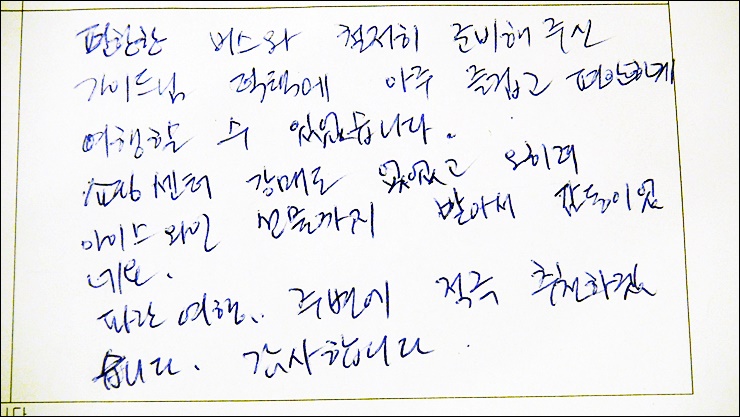 편안한 버스와 철저히 준비해 주신
가이드님 덕택에 아주 즐겁고 편안하게
여행할 수 있었습니다.
쇼핑센터 강매도 없었고 오히려
아이스와인 선물까지 받아서 감동이었
네요.
파란여행.. 주변에 적극 추천하겠
습니다. 감사합니다.